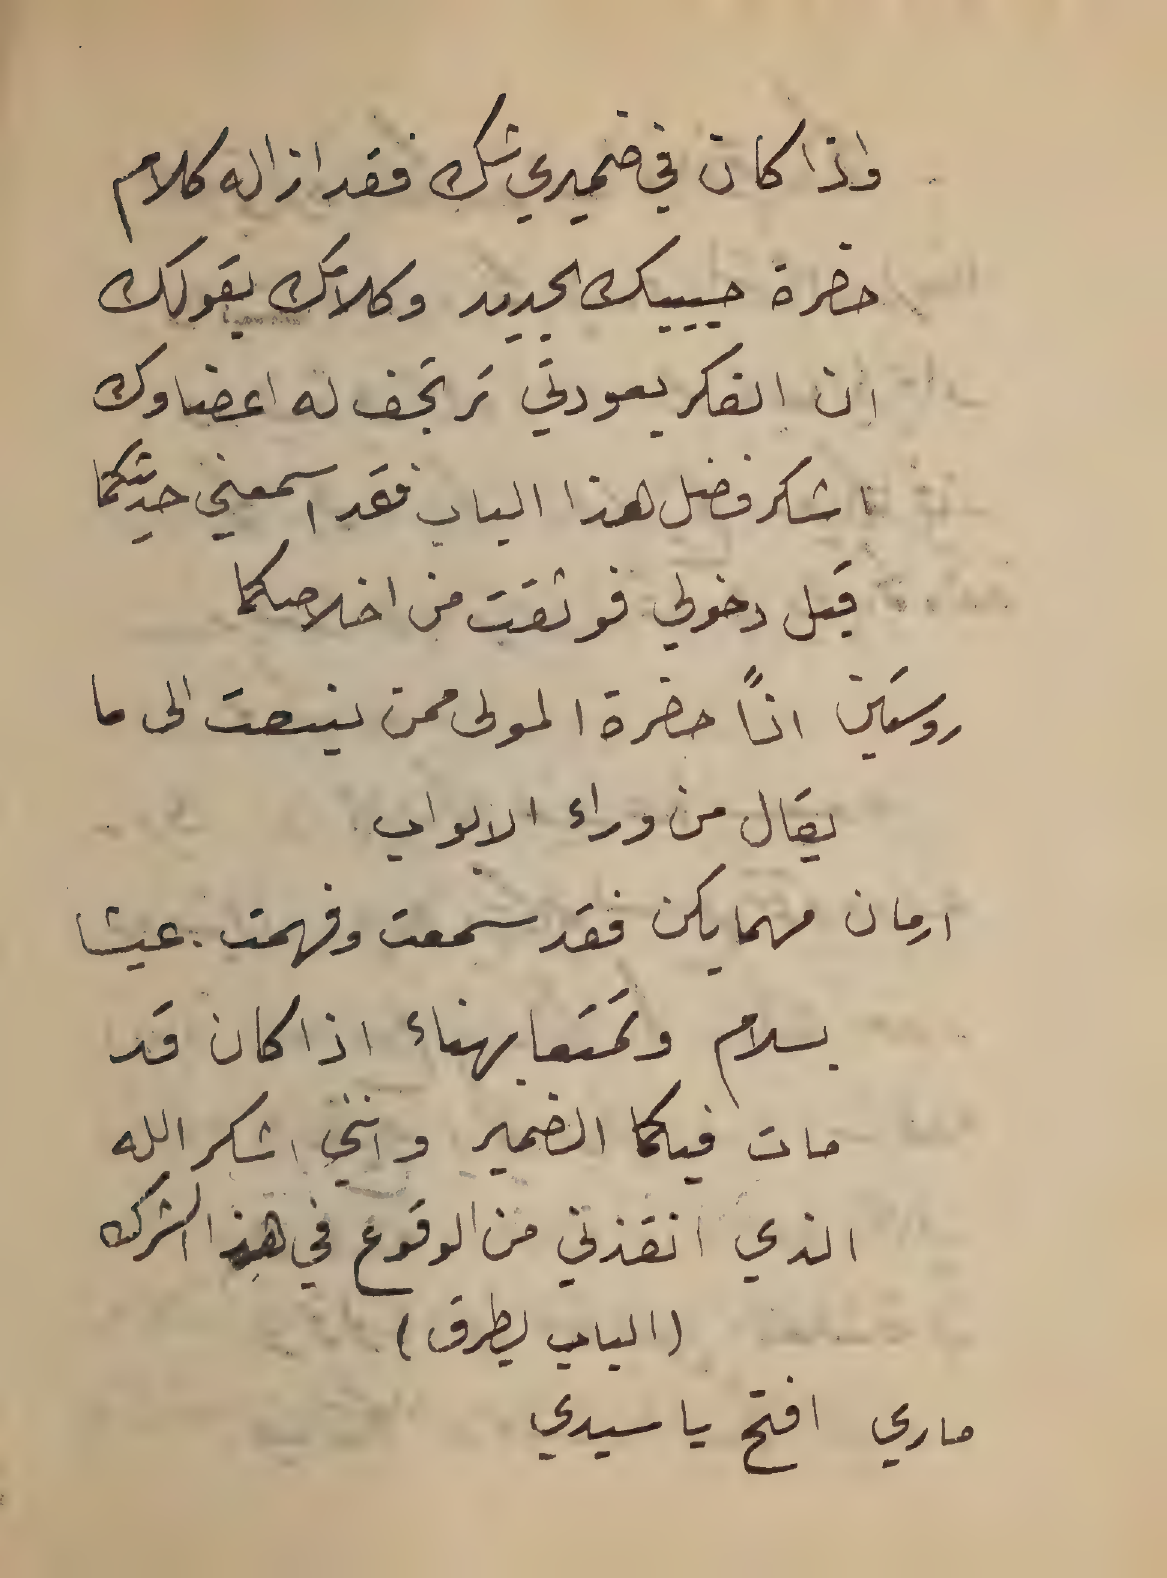 واذا كان في ضميري شك فقد ازاله كلام
حضرة حبيبك الجديد وكلامك بقولك
ان الفكر بعودتي ترتجف له اعضاوك
اشكر فضل هذا الباب فقد اسمعني حديثكما
قبل دخولي فوثقت من اخلاصكما
روستين اذًا حضرة المولى ممن ينصت الى ما
يقال من وراء الابواب
ارمان مهما يكن فقد سمعت وفهمت. عيشا
بسلام وتمتعا بهناء اذا كان قد
مات فيكما الضمير وانني اشكر الله
الذي انقذني من الوقوع في هذا الشرك
(الباب يطرق)
ماري افتح يا سيدي